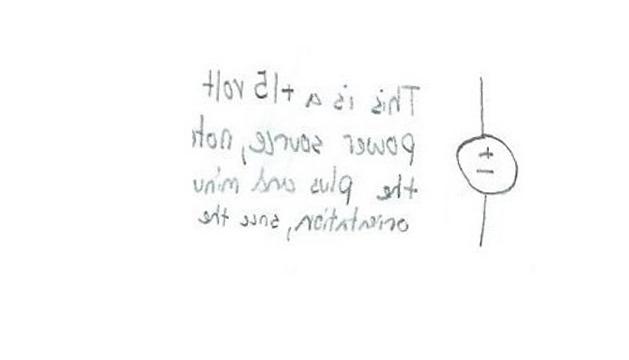 This is a +15 volt
power source, note
the plus and minu
orientation, the
+
−